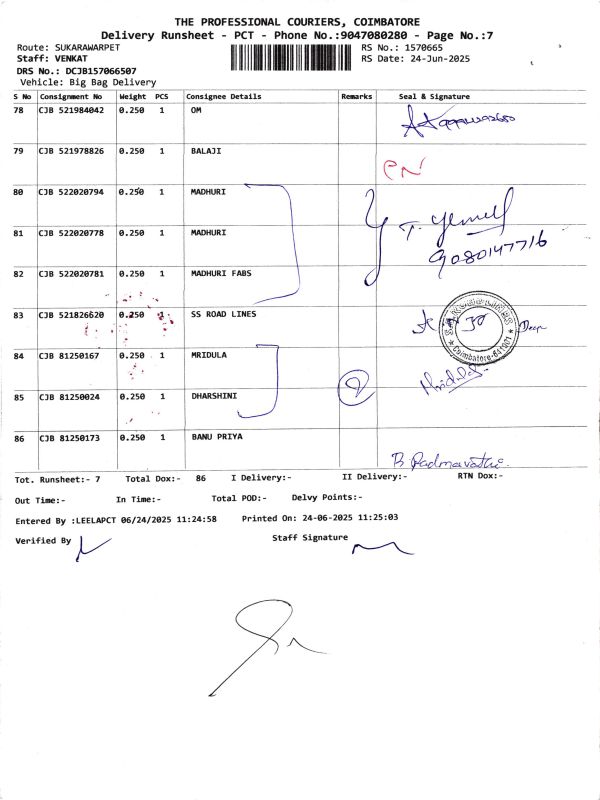 THE PROFESSIONAL COURIERS, COIMBATORE
Delivery Runsheet - PCT - Phone No.:9047080280 - Page No.:7
Route: SUKARAWARPET RS No.: 1570665
Staff: VENKAT RS Date: 24-Jun-2025
DRS No.: DCJB157066507
Vehicle: Big Bag Delivery
S No Consignment No Weight PCS Consignee Details Remarks Seal & Signature
78 CJB 521984042 0.250 1 OM
79 CJB 521978826 0.250 1 BALAJI
80 CJB 522020794 0.250 1 MADHURI
81 CJB 522020778 0.250 1 MADHURI
9080147716
82 CJB 522020781 0.250 1 MADHURI FABS
83 CJB 521826620 0.250 1 SS ROAD LINES
Coimbatore-641001
84 CJB 81250167 0.250 1 MRIDULA
Mridula
85 CJB 81250024 0.250 1 DHARSHINI 2
86 CJB 81250173 0.250 1 BANU PRIYA
Padmavathi
Tot. Runsheet:- 7 Total Dox:- 86 I Delivery:- II Delivery:- RTN Dox:-
Out Time:- In Time:- Total POD:- Delvy Points:-
Entered By :LEELAPCT 06/24/2025 11:24:58 Printed On: 24-06-2025 11:25:03
Verified By Staff Signature